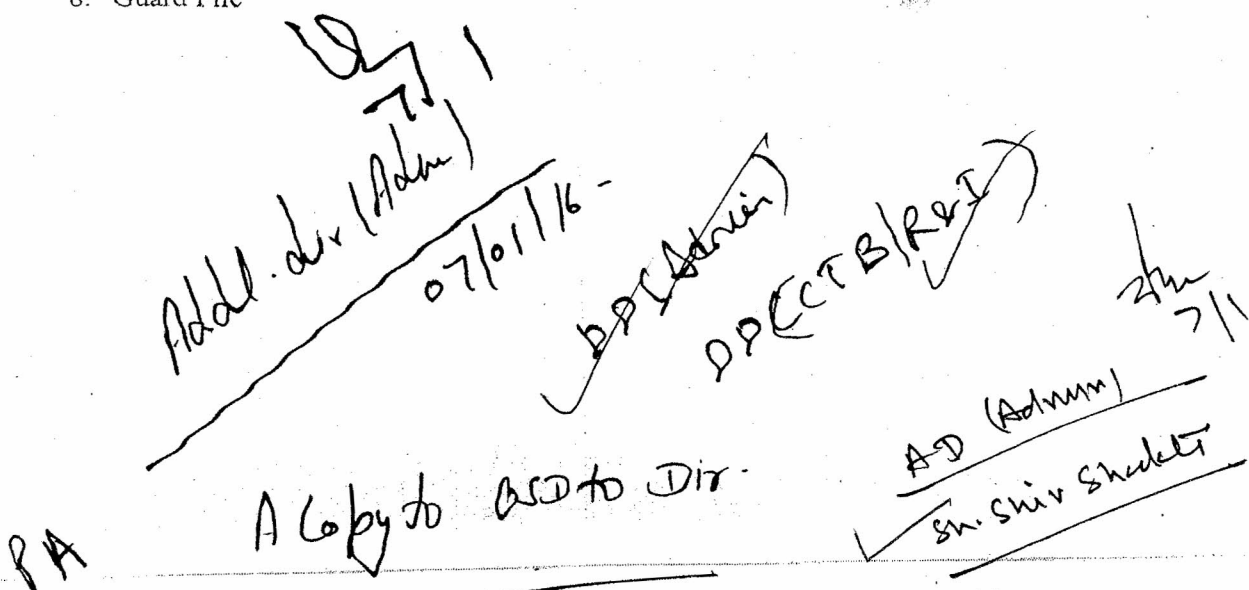 8. Guard File
7/1
Addl. dir (Adm)
07/01/16 -
DD (Admin)
DD (CTB/R&I)
7/1
AD (Admin)
Sh. Shiv Shakti
A Copy to OSD to Dir.
PA